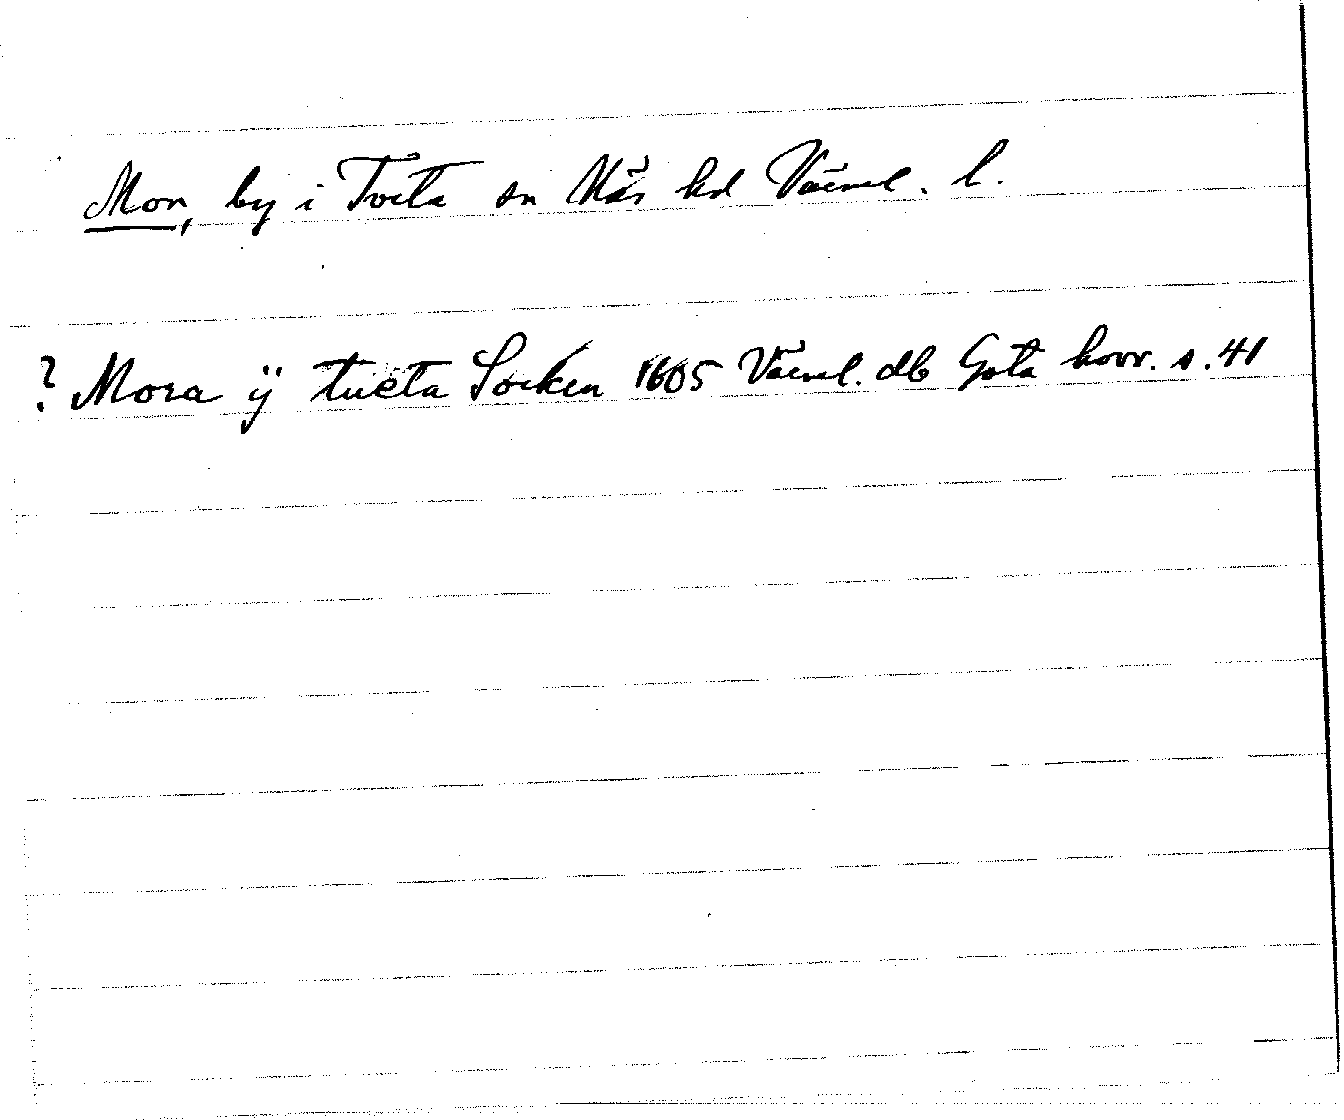 Mon, by i Tveta sn Näs hd Värml. l.
? Mora ÿ tueta Socken 1605 Värml. db Göta hovr. s. 41